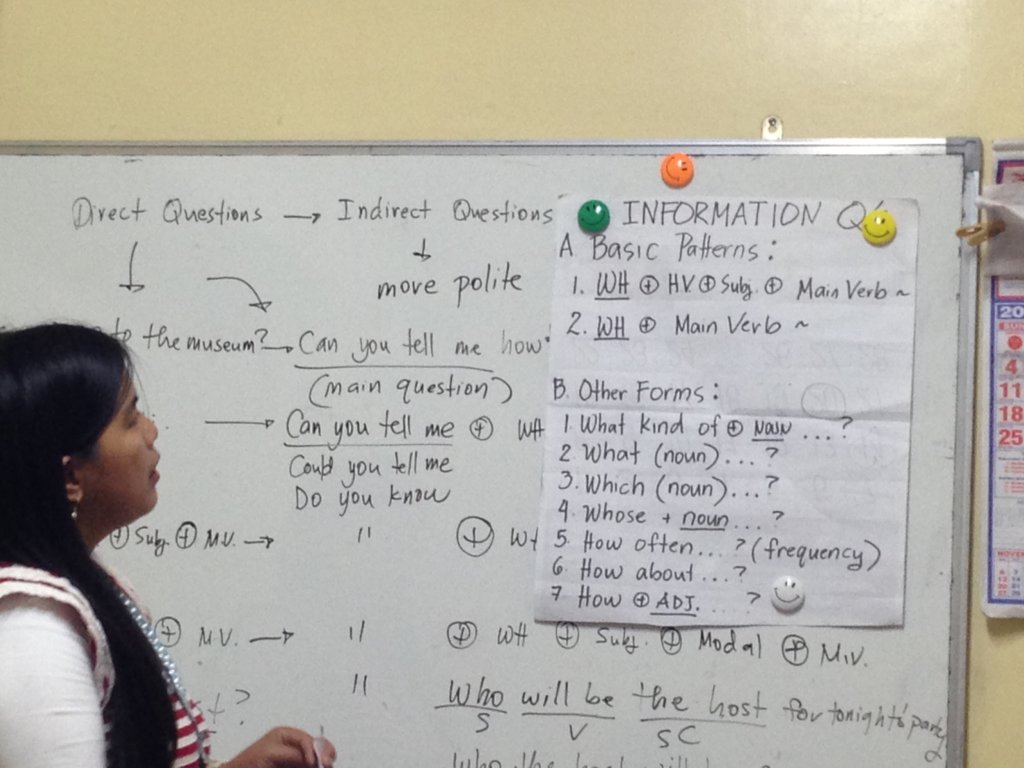 Direct Questions → Indirect Questions
more polite
to the museum? → Can you tell me how
(main question)
Can you tell me ⊕ WH
Could you tell me
Do you know
⊕ Subj. ⊕ M.V. → " ⊕ WH
⊕ M.V. → " ⊕ WH ⊕ Subj. ⊕ Modal ⊕ M.V.
"
Who will be the host for tonight's party
S V SC
INFORMATION Q
A. Basic Patterns:
1. WH ⊕ HV ⊕ Subj. ⊕ Main Verb ~
2. WH ⊕ Main Verb ~
B. Other Forms:
1. What kind of ⊕ NOUN ...?
2. What (noun)...?
3. Which (noun)...?
4. Whose + noun...?
5. How often...? (frequency)
6. How about...?
7 How ⊕ ADJ....?
20
SUN
4
11
18
25